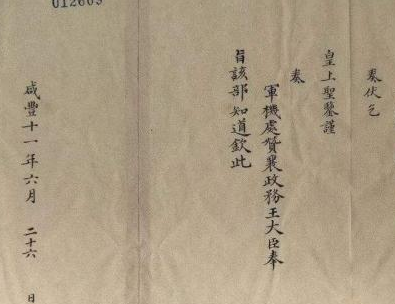 012603
奏伏乞
皇上聖鑒謹
奏
軍機處贊襄政務王大臣奉
旨該部知道欽此
咸豐十一年六月 二十六 日